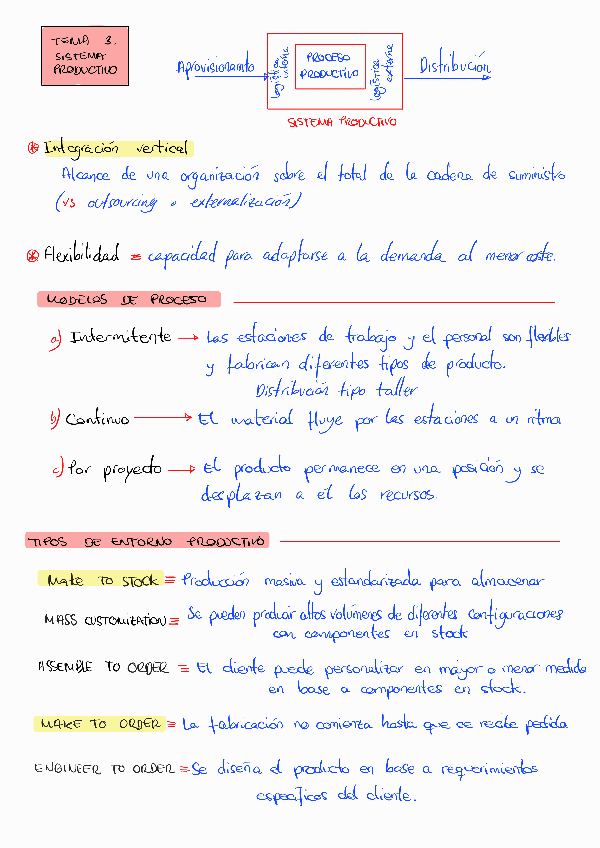 TEMA 3.
SISTEMA
PRODUCTIVO
Aprovisionamto
logística interna
PROCESO
PRODUCTIVO
logística externa
Distribución
SISTEMA PRODUCTIVO
Integración vertical
Alcance de una organización sobre el total de la cadena de suministro
(vs outsourcing o externalización)
Flexibilidad = capacidad para adaptarse a la demanda al menor coste.
MODELOS DE PROCESO
a) Intermitente → Las estaciones de trabajo y el personal son flexibles
y fabrican diferentes tipos de producto.
Distribución tipo taller
b) Continuo → El material fluye por las estaciones a un ritmo
c) Por proyecto → El producto permanece en una posición y se
desplazan a él los recursos.
TIPOS DE ENTORNO PRODUCTIVO
MAKE TO STOCK = Producción masiva y estandarizada para almacenar
MASS CUSTOMIZATION = Se pueden producir altos volúmenes de diferentes configuraciones
con componentes en stock
ASSEMBLE TO ORDER = El cliente puede personalizar en mayor o menor medida
en base a componentes en stock.
MAKE TO ORDER = La fabricación no comienza hasta que se recibe pedido
ENGINEER TO ORDER = Se diseña el producto en base a requerimientos
específicos del cliente.